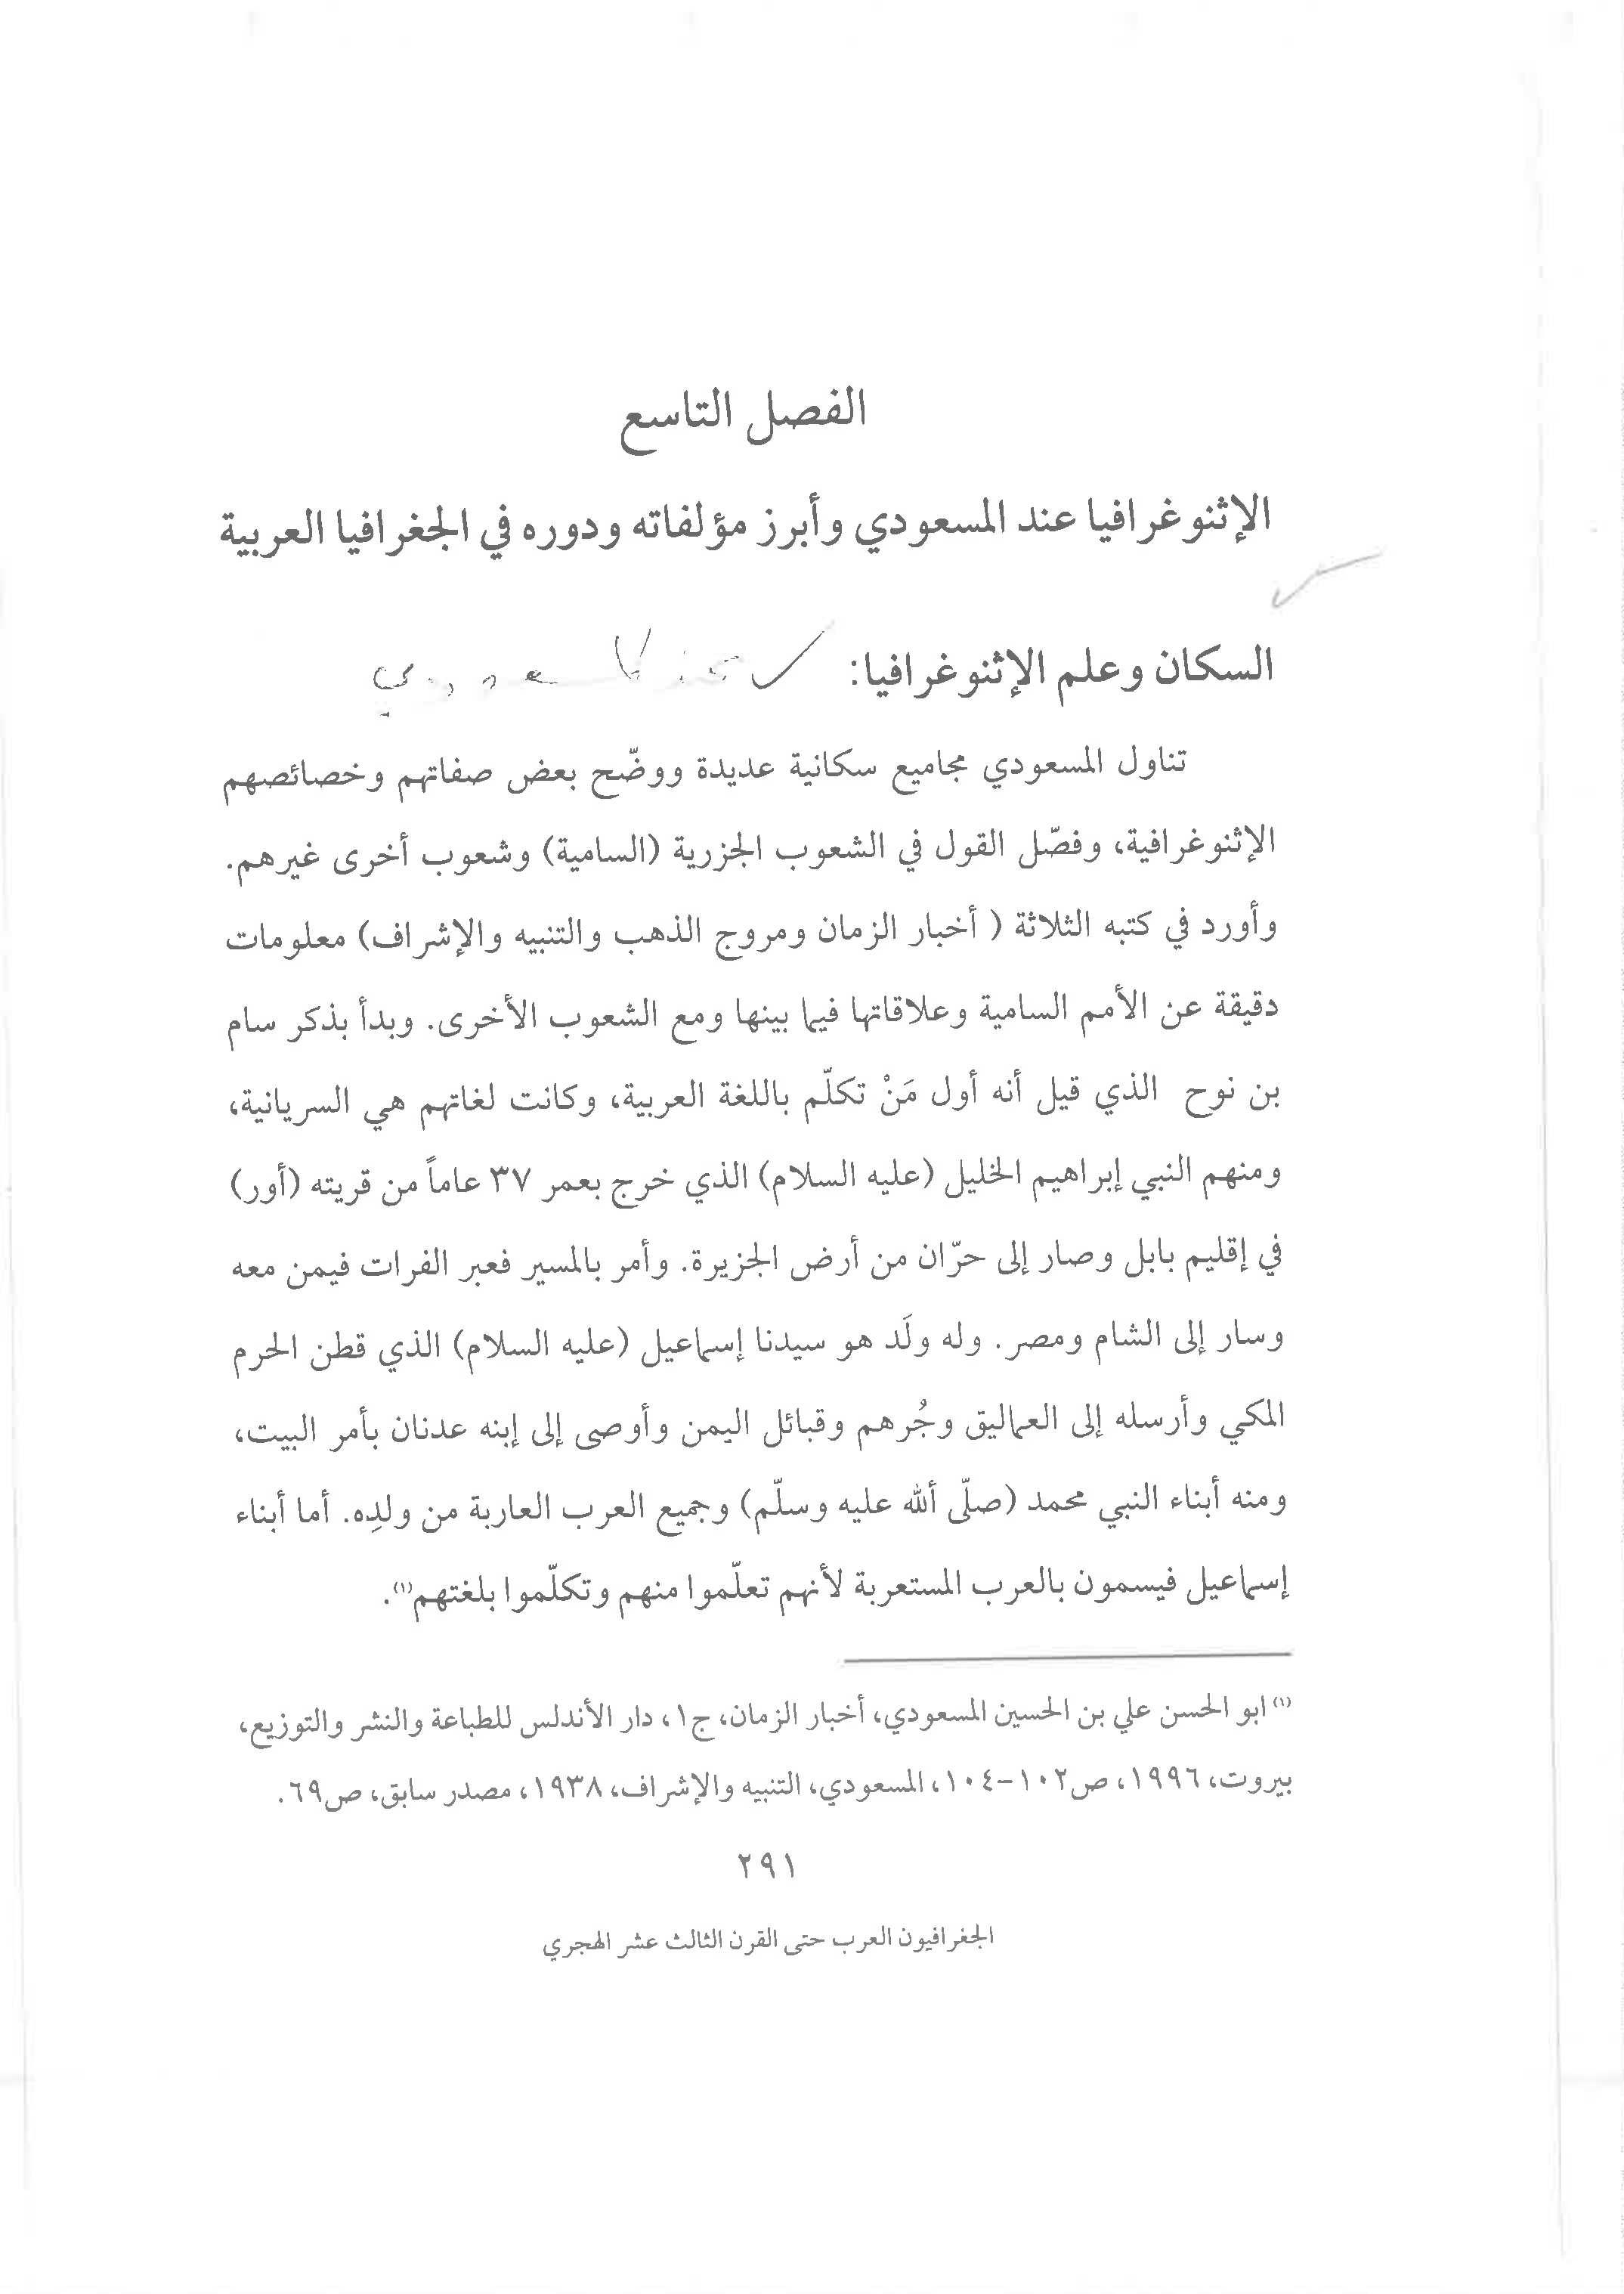 الفصل التاسع
الإثنوغرافيا عند المسعودي وأبرز مؤلفاته ودوره في الجغرافيا العربية
السكان وعلم الإثنوغرافيا:
تناول المسعودي مجاميع سكانية عديدة ووضّح بعض صفاتهم وخصائصهم
الإثنوغرافية، وفصّل القول في الشعوب الجزرية (السامية) وشعوب أخرى غيرهم.
وأورد في كتبه الثلاثة ( أخبار الزمان ومروج الذهب والتنبيه والإشراف) معلومات
دقيقة عن الأمم السامية وعلاقاتها فيما بينها ومع الشعوب الأخرى. وبدأ بذكر سام
بن نوح الذي قيل أنه أول مَنْ تكلّم باللغة العربية، وكانت لغاتهم هي السريانية،
ومنهم النبي إبراهيم الخليل (عليه السلام) الذي خرج بعمر ٣٧ عاماً من قريته (أور)
في إقليم بابل وصار إلى حرّان من أرض الجزيرة. وأمر بالمسير فعبر الفرات فيمن معه
وسار إلى الشام ومصر. وله ولَد هو سيدنا إسماعيل (عليه السلام) الذي قطن الحرم
المكي وأرسله إلى العماليق وجُرهم وقبائل اليمن وأوصى إلى إبنه عدنان بأمر البيت،
ومنه أبناء النبي محمد (صلّى ألله عليه وسلّم) وجميع العرب العاربة من ولدِه. أما أبناء
إسماعيل فيسمون بالعرب المستعربة لأنهم تعلّموا منهم وتكلّموا بلغتهم(١).
(١) ابو الحسن علي بن الحسين المسعودي، أخبار الزمان، ج١، دار الأندلس للطباعة والنشر والتوزيع،
بيروت، ١٩٩٦، ص١٠٢-١٠٤، المسعودي، التنبيه والإشراف، ١٩٣٨، مصدر سابق، ص٦٩.
٢٩١
الجغرافيون العرب حتى القرن الثالث عشر الهجري